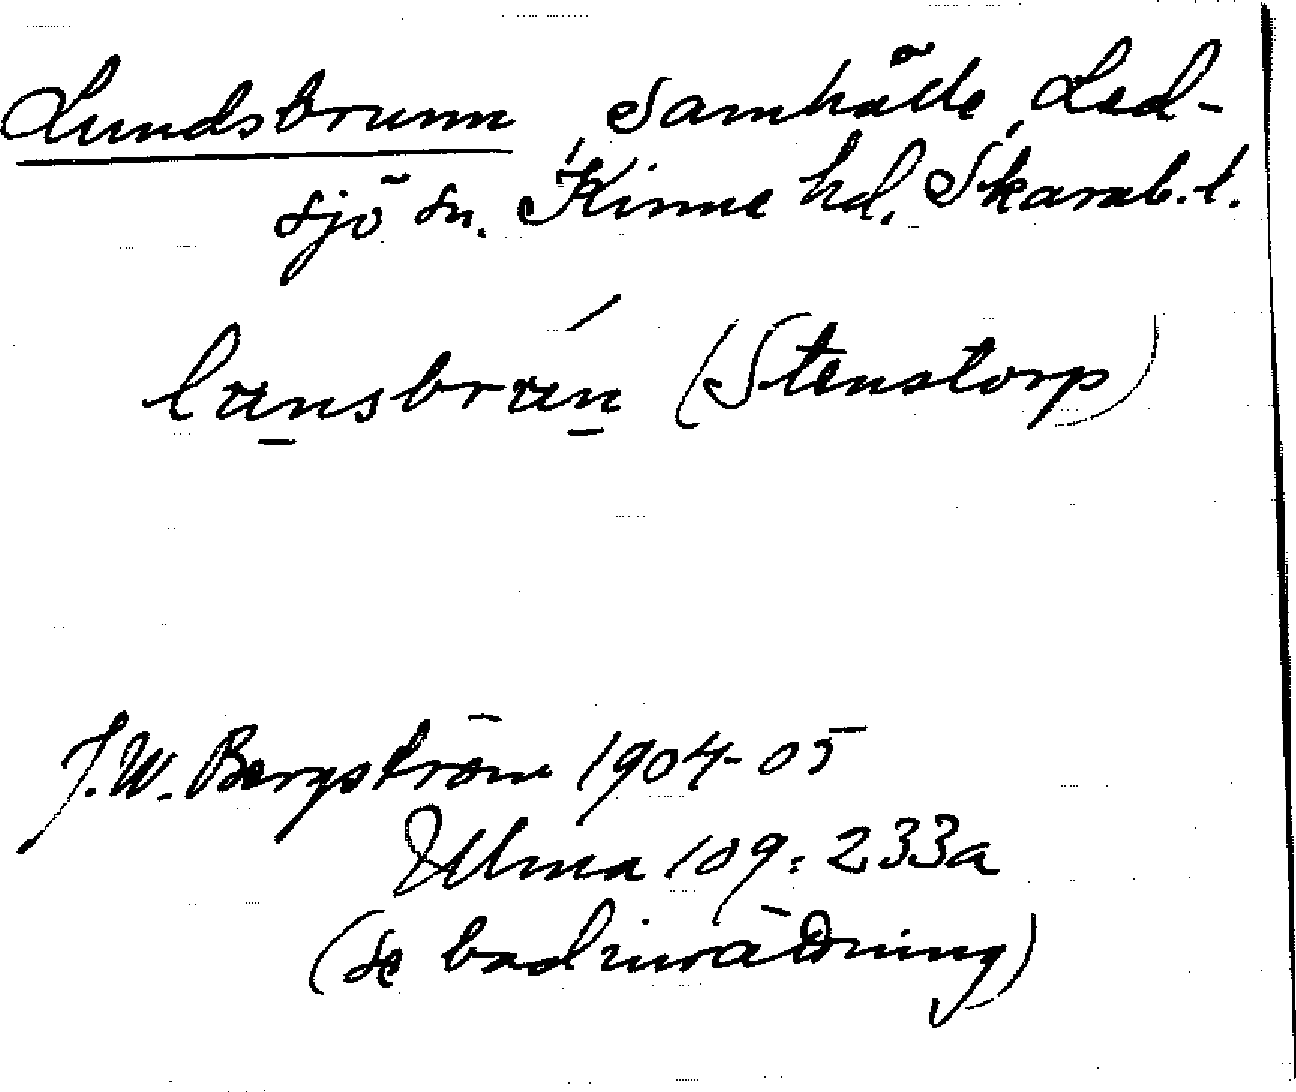 Lundsbrunn, samhälle, Led-
sjö sn. Kinne hd, Skarab. l.
(Stenstorp)
J. W. Bergström 1904-05
Ulma 109: 233a
(se badinrättning)